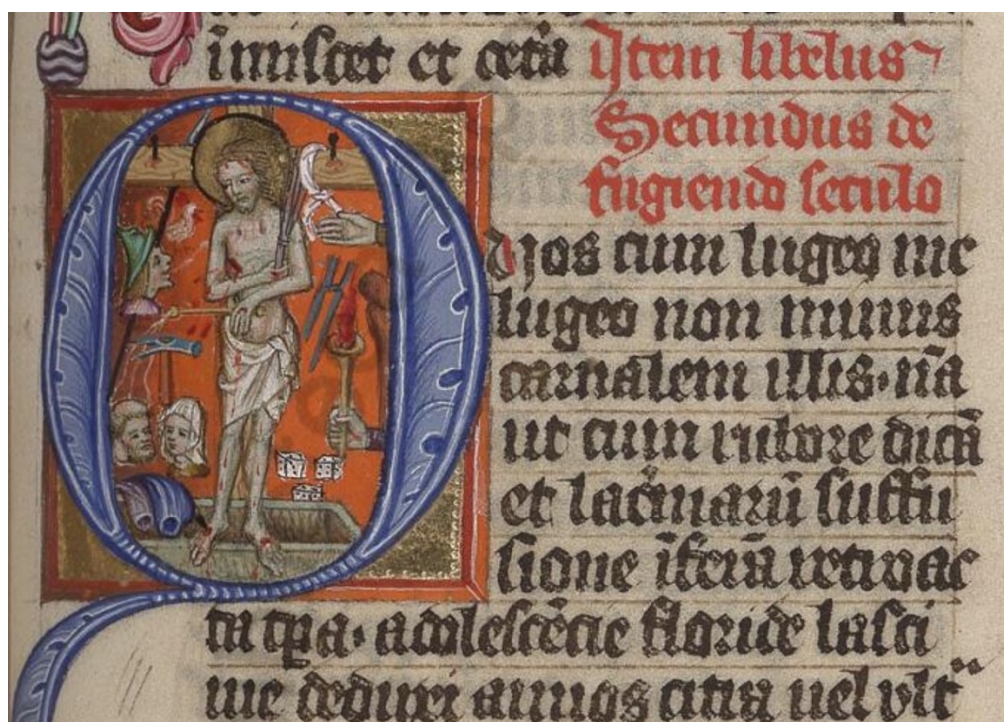 īmiscet et cetā Item libelus
Secundus de
fugiendo seculo
Quos cum lugeo me
lugeo non minus
carnalem illis. nā
ut cum rubore dicā
et lacimarū suffu
sione retroac
ta tpa. adolescēcie floride lasci
uie deduxi annos citra uel vlt